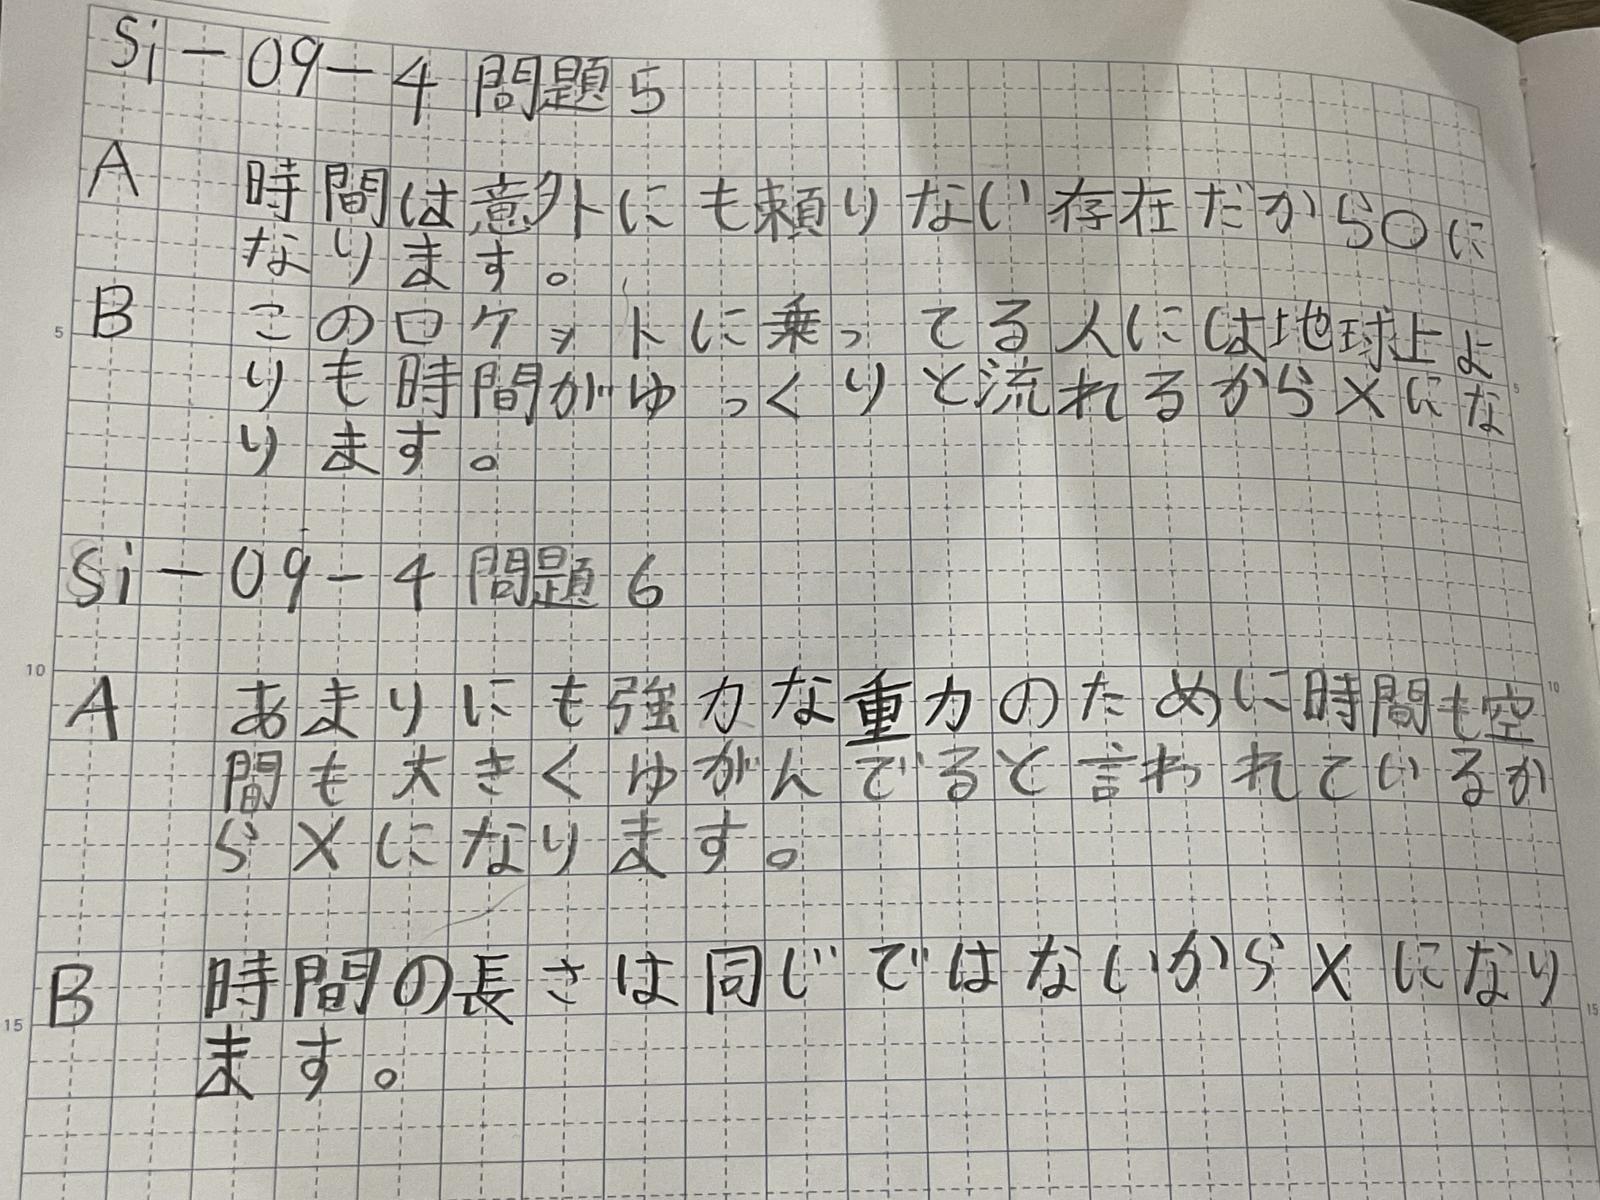 Si-09-4 問題5
A 時間は意外にも頼りない存在だから○に
なります。
B このロケットに乗ってる人には地球上よ
りも時間がゆっくりと流れるから×にな
ります。
Si-09-4 問題6
A あまりにも強力な重力のために時間も空
間も大きくゆがんでると言われているか
ら×になります。
B 時間の長さは同じではないから×になり
ます。
5
10
15
5
10
15